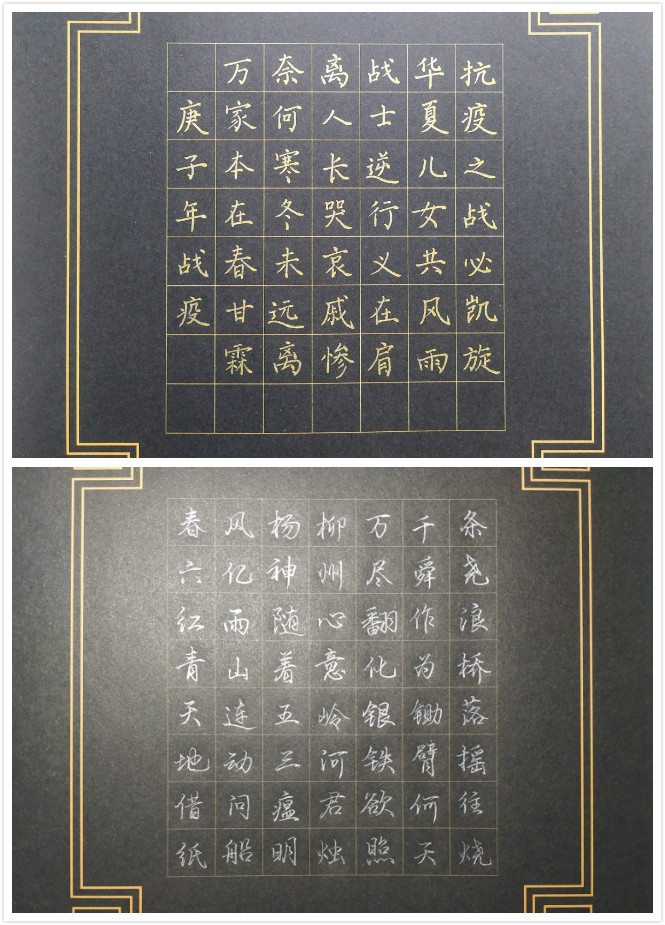 抗疫之战必凯旋
华夏儿女共风雨
战士逆行义在肩
离人长哭哀戚惨
奈何寒冬未远离
万家本在春甘霖
庚子年战疫
春风杨柳万千条
六亿神州尽舜尧
红雨随心翻作浪
青山着意化为桥
天连五岭银锄落
地动三河铁臂摇
借问瘟君欲何往
纸船明烛照天烧